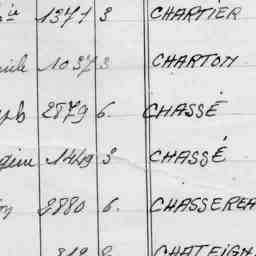 1371 3 CHARTIER
1037 3 CHARTON
2879 6. CHASSÉ
1449 3 CHASSÉ
2880 6. CHASSEREA
CHATEIGN